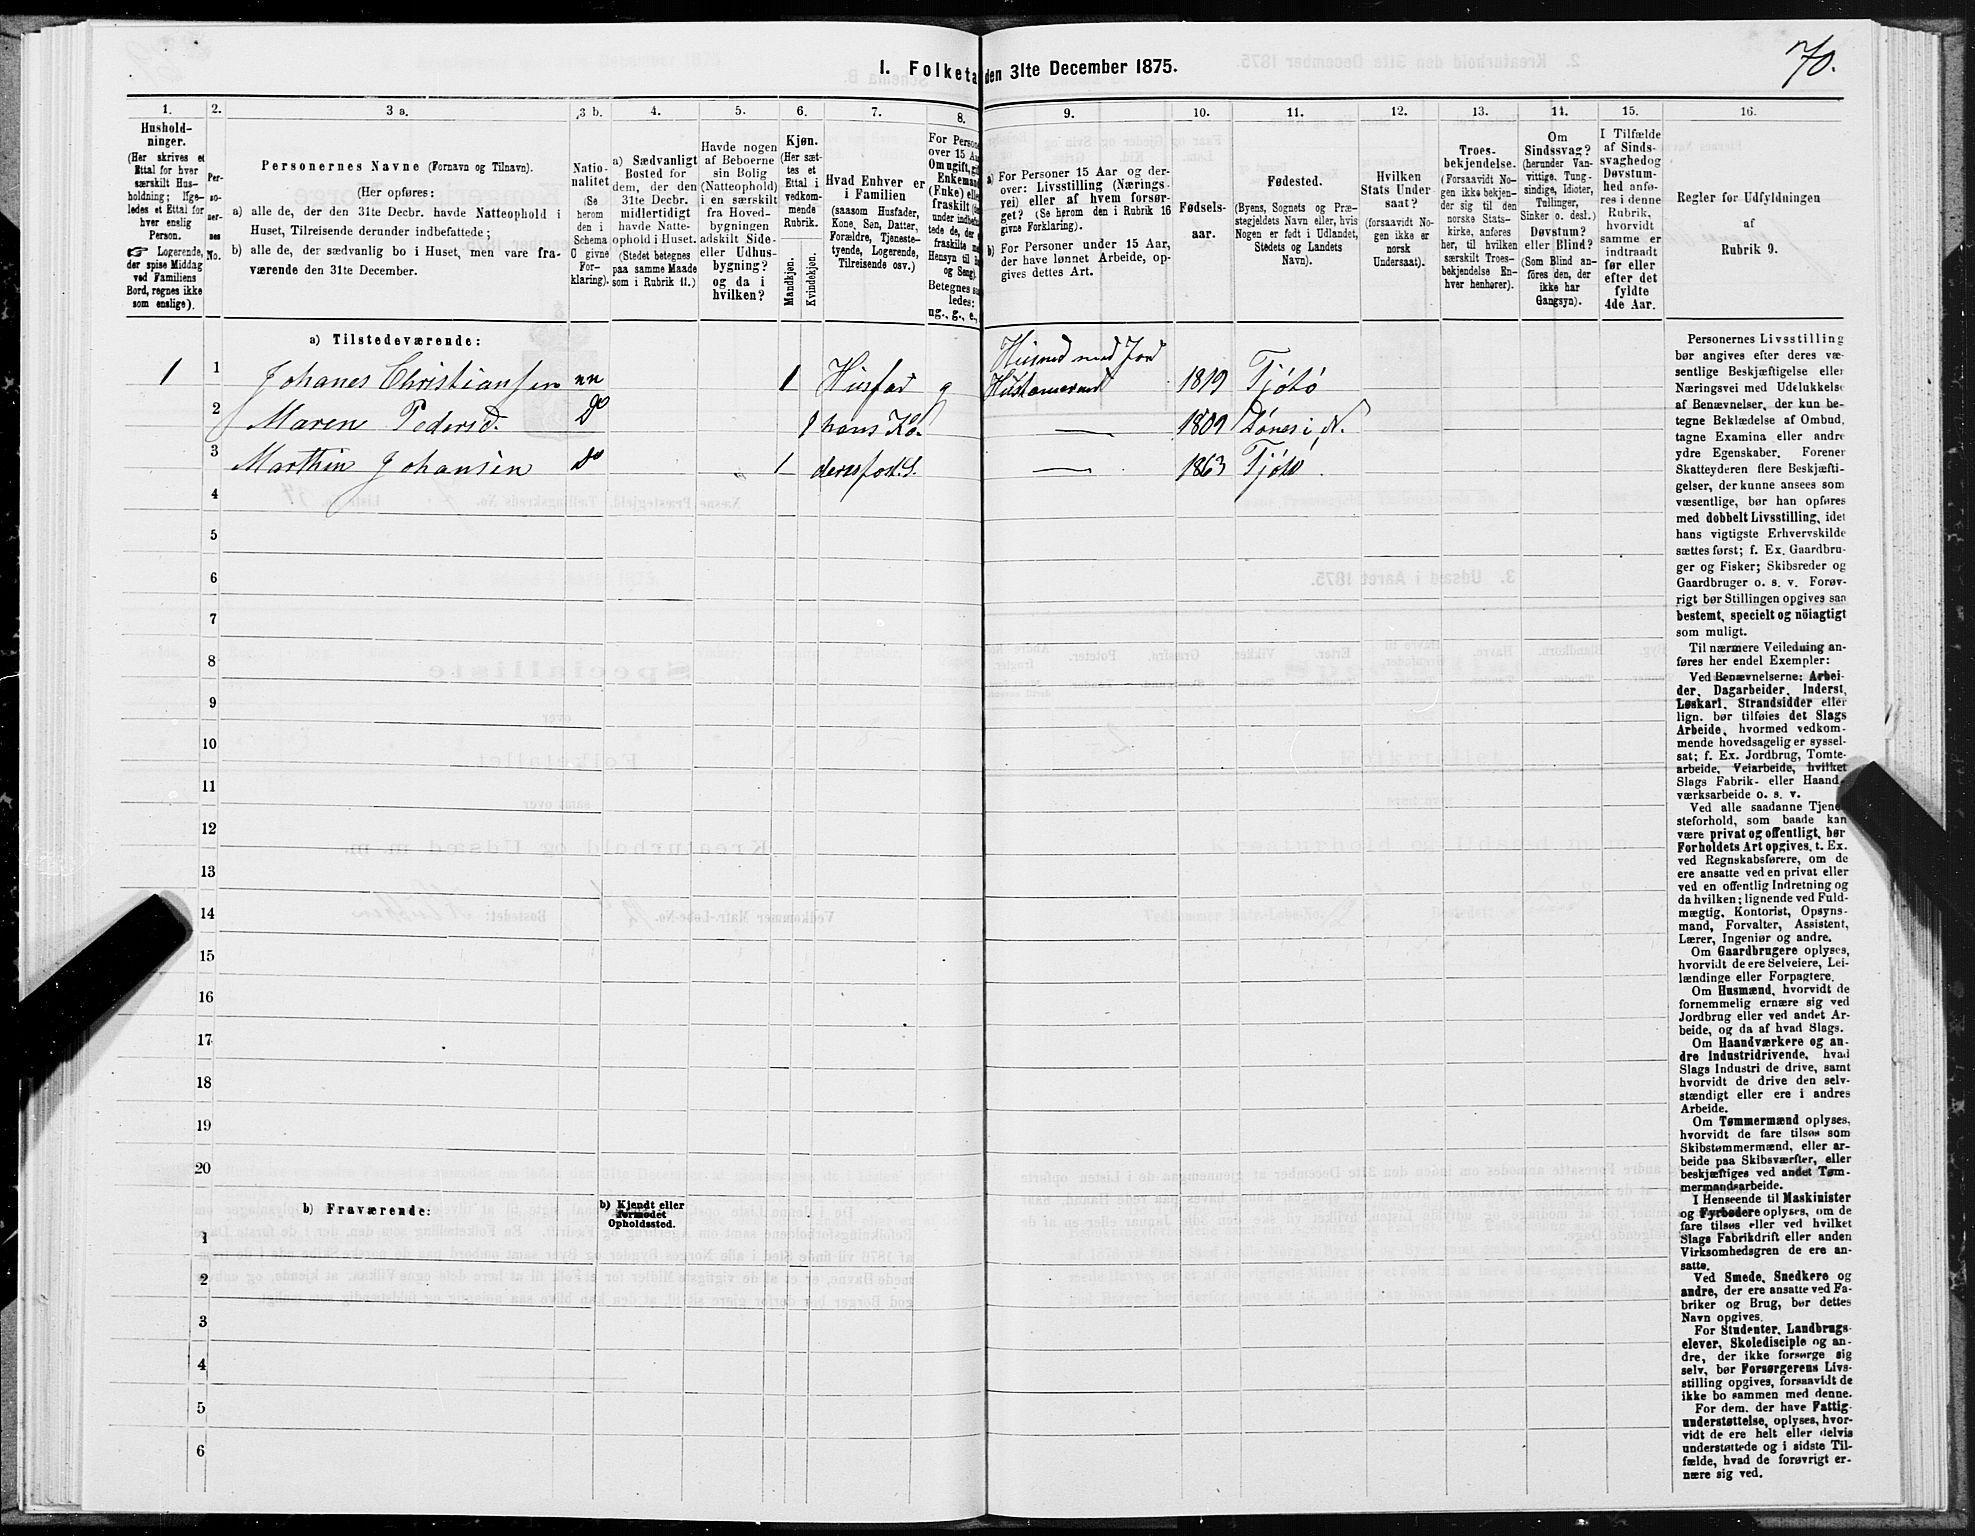 70.
I. Folketa den 31te December 1875.
1.
Hushold-
ninger.
(Her skrives et
Ettal for hver
særskilt Hus-
holdning; lige-
ledes et Ettal for
hver enslig
Person.
☞ Logerende,
der spise Middag
ved Familiens
Bord, regnes ikke
som enslige).
2.
Per-
so-
ner-
nes
No.
3 a.
Personernes Navne (Fornavn og Tilnavn).
(Her opføres:
a) alle de, der den 31te Decbr. havde Natteophold i
Huset, Tilreisende derunder indbefattede;
b) alle de, der sædvanlig bo i Huset, men vare fra-
værende den 31te December.
3 b.
Natio-
nalitet
(Se
herom
den i
Schema
C givne
For-
klaring).
4.
a) Sædvanligt
Bosted for
dem, der den
31te Decbr.
midlertidigt
havde Natte-
ophold i Huset.
(Stedet betegnes
paa samme Maade
som i Rubrik 11.)
5.
Havde nogen
af Beboerne
sin Bolig
(Natteophold)
i en særskilt
fra Hoved-
bygningen
adskilt Side-
eller Udhus-
bygning?
og da i
hvilken?
6.
Kjøn.
(Her sæt-
tes et
Ettal i
vedkom-
mende
Rubrik.
Mandkjøn.
Kvindekjøn.
7.
Hvad Enhver er
i Familien
(saasom Husfader,
Kone, Søn, Datter,
Forældre, Tjeneste-
tyende, Logerende,
Tilreisende osv.)
8.
For Person
over 15 Aa
Om ugift, gif
Enkemand
(Enke) elle
fraskilt (he
under indbefa
tede de, der e
fraskilte me
Hensyn til Bo
og Seng).
Betegnes saa
ledes:
ug., g., e.,
9.
a) For Personer 15 Aar og der-
over: Livsstilling (Nærings-
vei) eller af hvem forsør-
get? (Se herom den i Rubrik 16
givne Forklaring).
b) For Personer under 15 Aar,
der have lønnet Arbeide, op-
gives dettes Art.
10.
Fødsels-
aar.
11.
Fødested.
(Byens, Sognets og Præ-
stegjeldets Navn eller, hvis
Nogen er født i Udlandet,
Stedets og Landets
Navn).
12.
Hvilken
Stats Under-
saat?
(forsaavidt No-
gen ikke er
norsk
Undersaat).
13.
Troes-
bekjendelse.
(Forsaavidt No-
gen ikke bekjen-
der sig til den
norske Stats-
kirke, anføres
her, til hvilken
særskilt Troes-
bekjendelse En-
hver henhører).
14.
Om
Sindssvag?
(herunder Van-
vittige, Tung-
sindige, Idioter,
Tullinger,
Sinker o. desl.)
Døvstum?
eller Blind?
(Som Blind an-
føres den, der
ikke har
Gangsyn).
15.
I Tilfælde
af Sinds-
svaghed og
Døvstum-
hed anfø-
res i denne
Rubrik,
hvorvidt
samme er
indtraadt
før eller
efter det
fyldte
4de Aar.
16.
Regler for Udfyldningen
af
Rubrik 9.
a) Tilstedeværende:
Husmd med Jord
1 1 Johanes Christiansen nn 1 Husfad g 1819 Tjötö
2 Maren Pedersd. Do 1 hans Ko. — 1809 Dönes i N.
3 Marthin Johansen Do 1 deres fost. S. — 1863 Tjötö
4
5
6
7
8
9
10
11
12
13
14
15
16
17
18
19
20
b) Fraværende:
b) Kjendt eller
formodet
Opholdssted.
1
2
3
4
5
6
Personernes Livsstilling
bør angives efter deres væ-
sentlige Beskjæftigelse eller
Næringsvei med Udelukkelse
af Benævnelser, der kun be-
tegne Beklædelse af Ombud,
tagne Examina eller andre
ydre Egenskaber. Forener
Skatteyderen flere Beskjæfti-
gelser, der kunne ansees som
væsentlige, bør han opføres
med dobbelt Livsstilling, idet
hans vigtigste Erhvervskilde
sættes først; f. Ex. Gaardbru-
ger og Fisker; Skibsreder og
Gaardbruger o. s. v. Forøv-
rigt bør Stillingen opgives saa
bestemt, specielt og nöiagtigt
som muligt.
Til nærmere Veiledning an-
føres her endel Exempler:
Ved Benævnelserne: Arbei-
der, Dagarbeider, Inderst,
Løskarl, Strandsidder eller
lign. bør tilføies det Slags
Arbeide, hvormed vedkom-
mende hovedsagelig er syssel-
sat; f. Ex. Jordbrug, Tomte-
arbeide, Veiarbeide, hvilket
Slags Fabrik- eller Haand-
værksarbeide o. s. v.
Ved alle saadanne Tjene-
steforhold, som baade kan
være privat og offentligt, bør
Forholdets Art opgives, t. Ex.
ved Regnskabsførere, om de
ere ansatte ved en privat eller
ved en offentlig Indretning og
da hvilken; lignende ved Fuld-
mægtig, Kontorist, Opsyns-
mand, Forvalter, Assistent,
Lærer, Ingeniør og andre.
Om Gaardbrugere oplyses,
hvorvidt de ere Selveiere, Lei-
lændinge eller Forpagtere.
Om Husmænd, hvorvidt de
fornemmelig ernære sig ved
Jordbrug eller ved andet Ar-
beide, og da af hvad Slags.
Om Haandværkere og an-
dre Industridrivende, hvad
Slags Industri de drive, samt
hvorvidt de drive den selv-
stændigt eller ere i andres
Arbeide.
Om Tømmermænd oplyses,
hvorvidt de fare tilsøs som
Skibstømmermænd, eller ar-
beide paa Skibsværfter, eller
beskjæftiges ved andet Tøm-
mermandsarbeide.
I Henseende til Maskinister
og Fyrbødere oplyses, om de
fare tilsøs eller ved hvilket
Slags Fabrikdrift eller anden
Virksomhedsgren de ere an-
satte.
Ved Smede, Snedkere og
andre, der ere ansatte ved Fa-
briker og Brug, bør dettes
Navn opgives.
For Studenter, Landbrugs-
elever, Skoledisciple og an-
dre, der ikke forsørge sig
selv, bør Forsørgerens Livs-
stilling opgives, forsaavidt de
ikke bo sammen med denne.
For dem, der have Fattig-
understøttelse, oplyses, hvor-
vidt de ere helt eller delvis
understøttede og i sidste Til-
fælde, hvad de forøvrigt er-
nære sig ved.